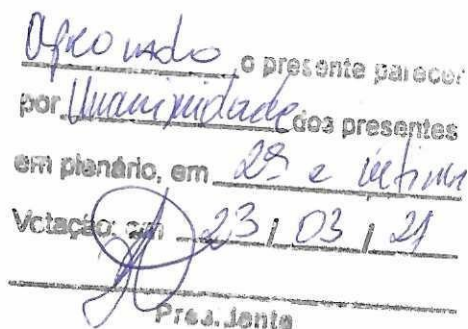 Aprovado o presente parecer
por Unanimidade dos presentes
em plenário, em 2ª e última
Votação: em 23 / 03 / 21
Presidente